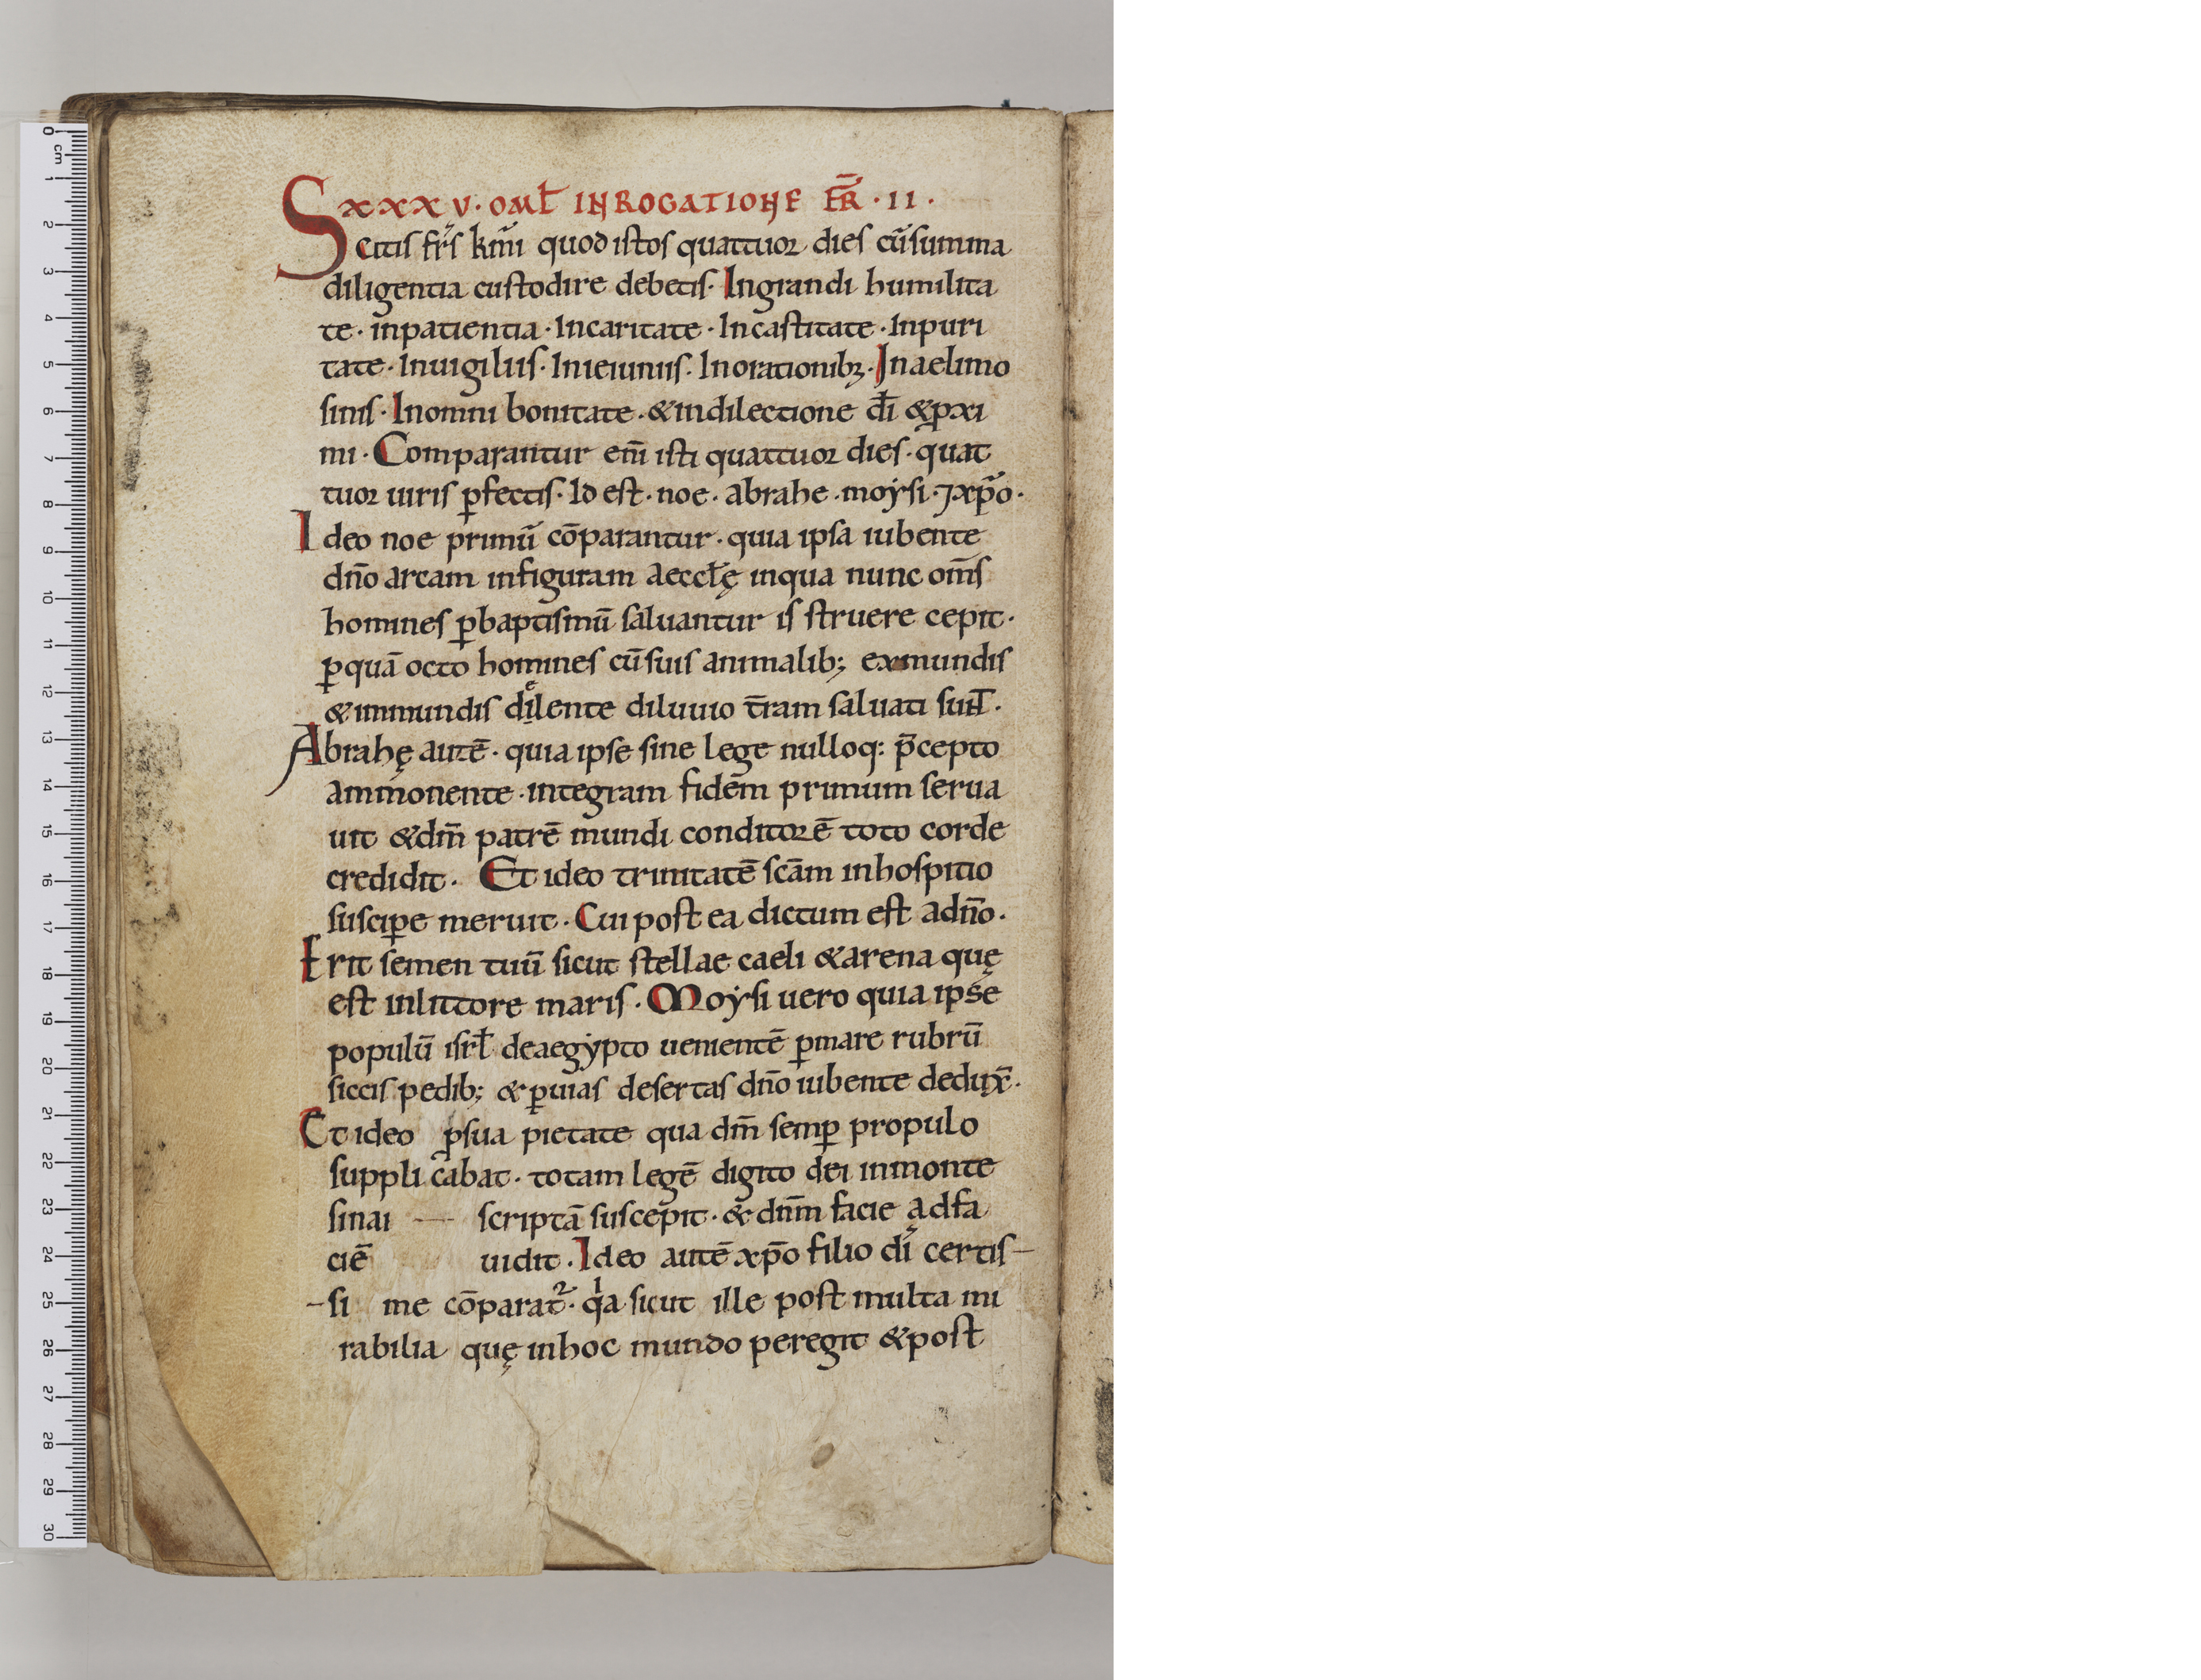 xxxv. OML̄ IN ROGATIONE FR̄ · II ·
Scitis fr̄s km̄i quod istos quattuor dies cū summa
diligentia custodire debetis · In grandi humilita
te · in patientia · In caritate · In castitate · In puri
tate · In uigiliis · In ieiuniis · In orationibꝫ · In aelimo
sinis · In omni bonitate · & in dilectione dī & ꝓxi
mi · Comparantur enī isti quattuor dies · quat
tuor uiris ꝑfectis · Id est · noe · abrahe · moẏsi · ⁊ xp̄o ·
Ideo noe primū cōparantur · quia ipsa iubente
dn̄o arcam in figuram aeccłę in qua nunc om̄s
homines ꝑ baptismū saluantur is struere cepit ·
ꝑ quā octo homines cū suis animalib; ex mundis
& immundis dị̊ͤlente diluuio t̄ram saluati sunt̄ ·
Abrahę autē · quia ipse sine lege nulloq: p̄cepto
ammonente · integram fidem primum serua
uit & dm̄ patrē mundi conditorē toto corde
credidit · Et ideo trinitatē scām in hospitio
susciꝑe meruit · Cui post ea dictum est a dn̄o ·
Erit semen tuū sicut stellae caeli & arena quę
est in littore maris · Moẏsi uero quia ipse
populū isrł de aegẏpto uenientē ꝑ mare rubrū
siccis pedib; & ꝑ uias desertas dn̄o iubente dedux̄ ·
Et ideo ꝓ sua pietate qua dm̄ semꝑ pro pulo
suppli cabat · totam legē digito dei in monte
sinai — scriptā suscepit · & dn̄m facie ad fa
ciē uidit · Ideo autē xp̄o filio dī certis–
–si me cōparat᷑ · qͥa sicut ille post multa mi
rabilia quę in hoc mundo peregit & post
0 cm 1 2 3 4 5 6 7 8 9 10 11 12 13 14 15 16 17 18 19 20 21 22 23 24 25 26 27 28 29 30